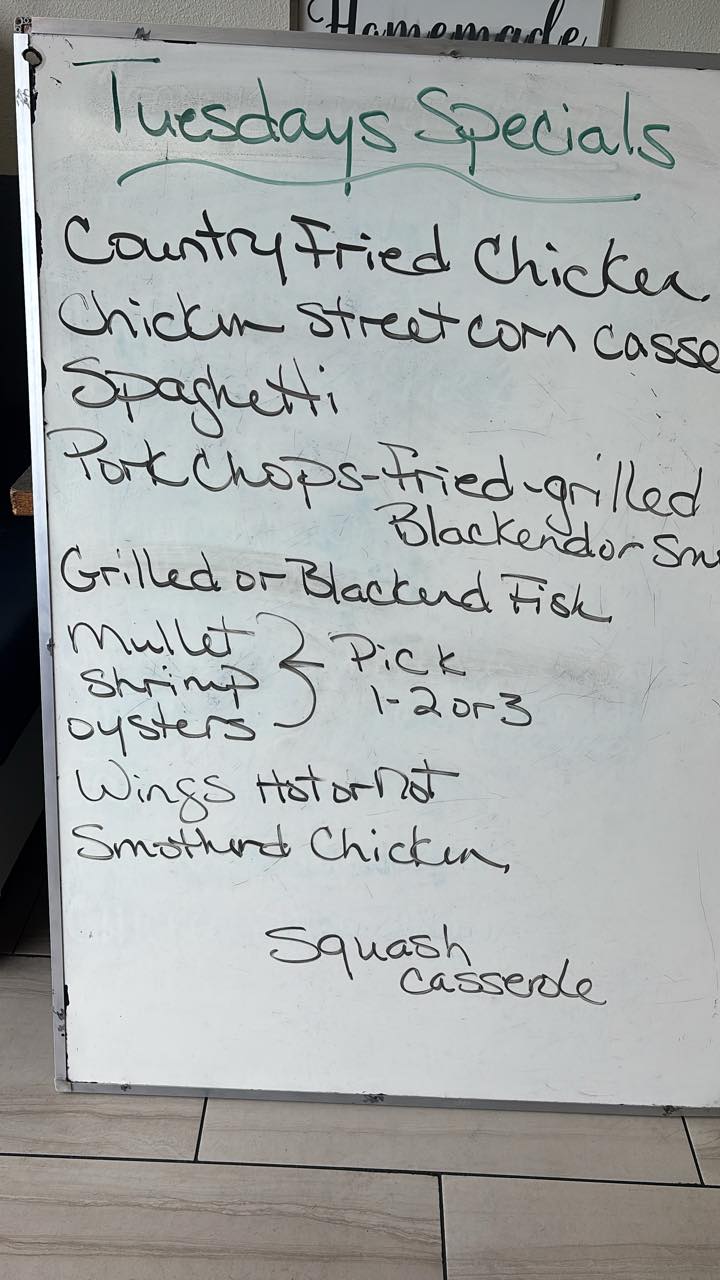 Homemade
Tuesdays Specials
Country Fried Chicken
Chicken Street corn Casse
Spaghetti
Pork Chops-Fried-grilled
Blackend or Sm
Grilled or Blackend Fish
Mullet
shrimp
oysters
Pick
1-2 or 3
Wings Hot or Not
Smotherd Chicken
Squash
Casserole